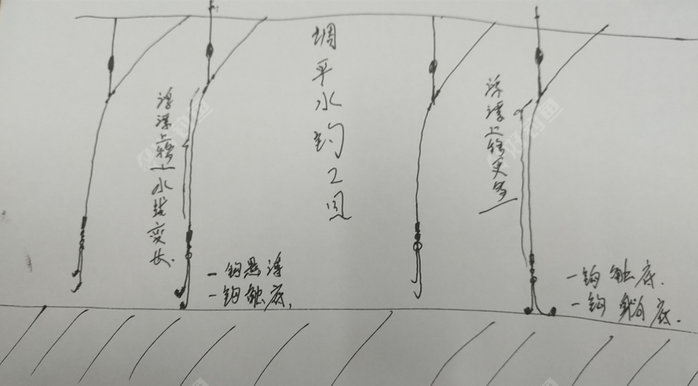 浮漂上移，水线变长.
调平水钓2目
浮漂上移更多
一钩悬浮
一钩触底，
一钩触底.
一钩躺底.